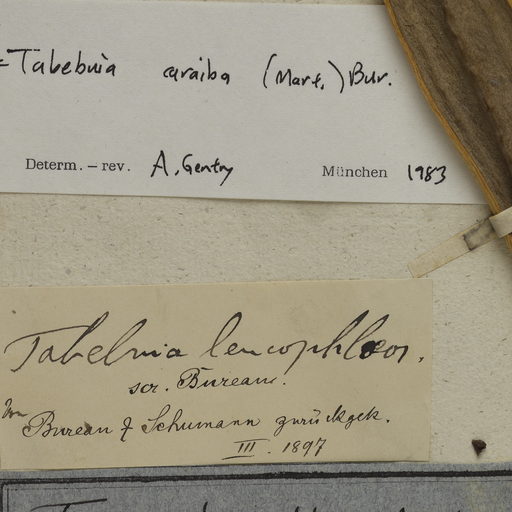 = Tabebuia caraiba (Mart.) Bur.
Determ. – rev. A. Gentry München 1983
Tabebuia leucophloeos.
scr. Bureau.
Von
Bureau & Schumann zurückgek.
III. 1897